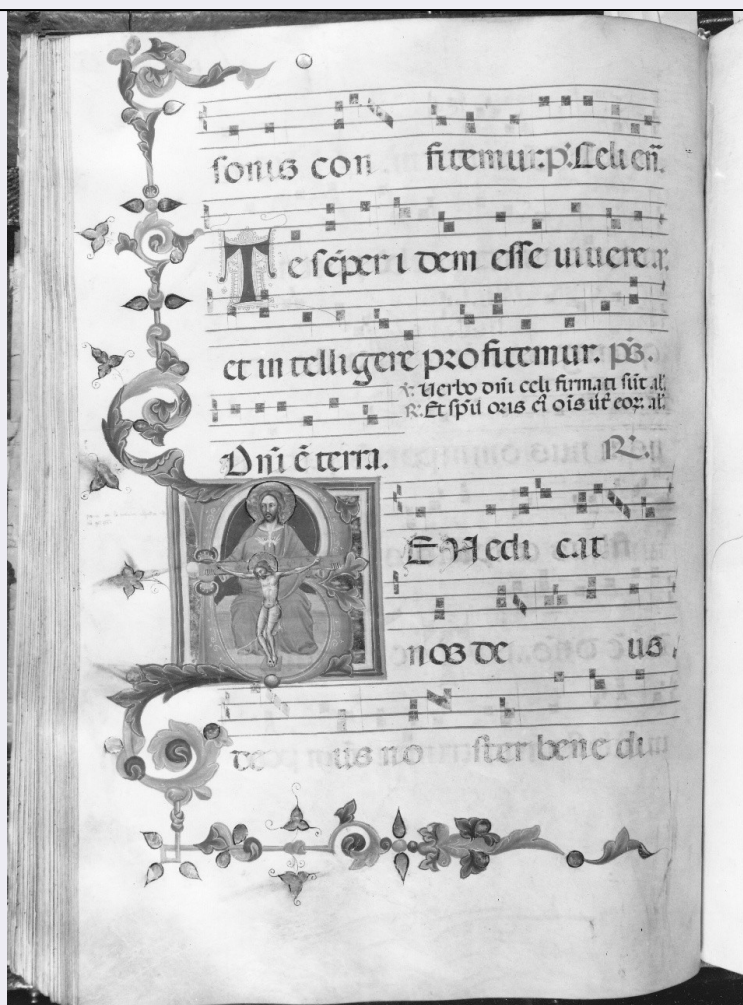 sonis con fitemur: ps. Celi eñ.
Te sẽper i dem esse uiuere.r.
et in telli gere pro fitemur. ps.
℣. Uerbo dñi celi firmati sũt al̃.
R. Et sp̃u oris eiꝰ oĩs uĩt eoꝝ. al̃.
Dñi ẽ terra. R̃.
BENedi cat
nos de us
de us no ster bene di